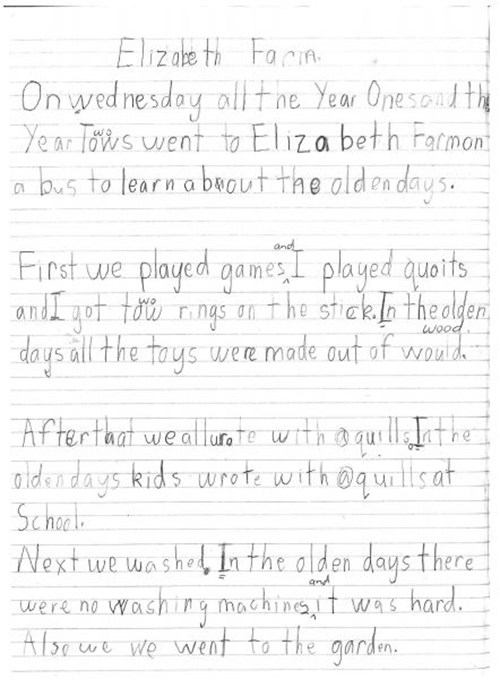 Elizabeth Farm.
On wednesday all the Year Ones and the
Year Tows wo went to Elizabeth Farm on
a bus to learn about the olden days.
First we played games, and I played quoits
and I got tow wo rings on the stick. In the olden
days all the toys were made out of would. wood.
After that we all wrote with @ quills. In the
olden days kids wrote with @ quills at
School.
Next we washed. In the olden days there
were no washing machines, and it was hard.
Also we we went to the garden.